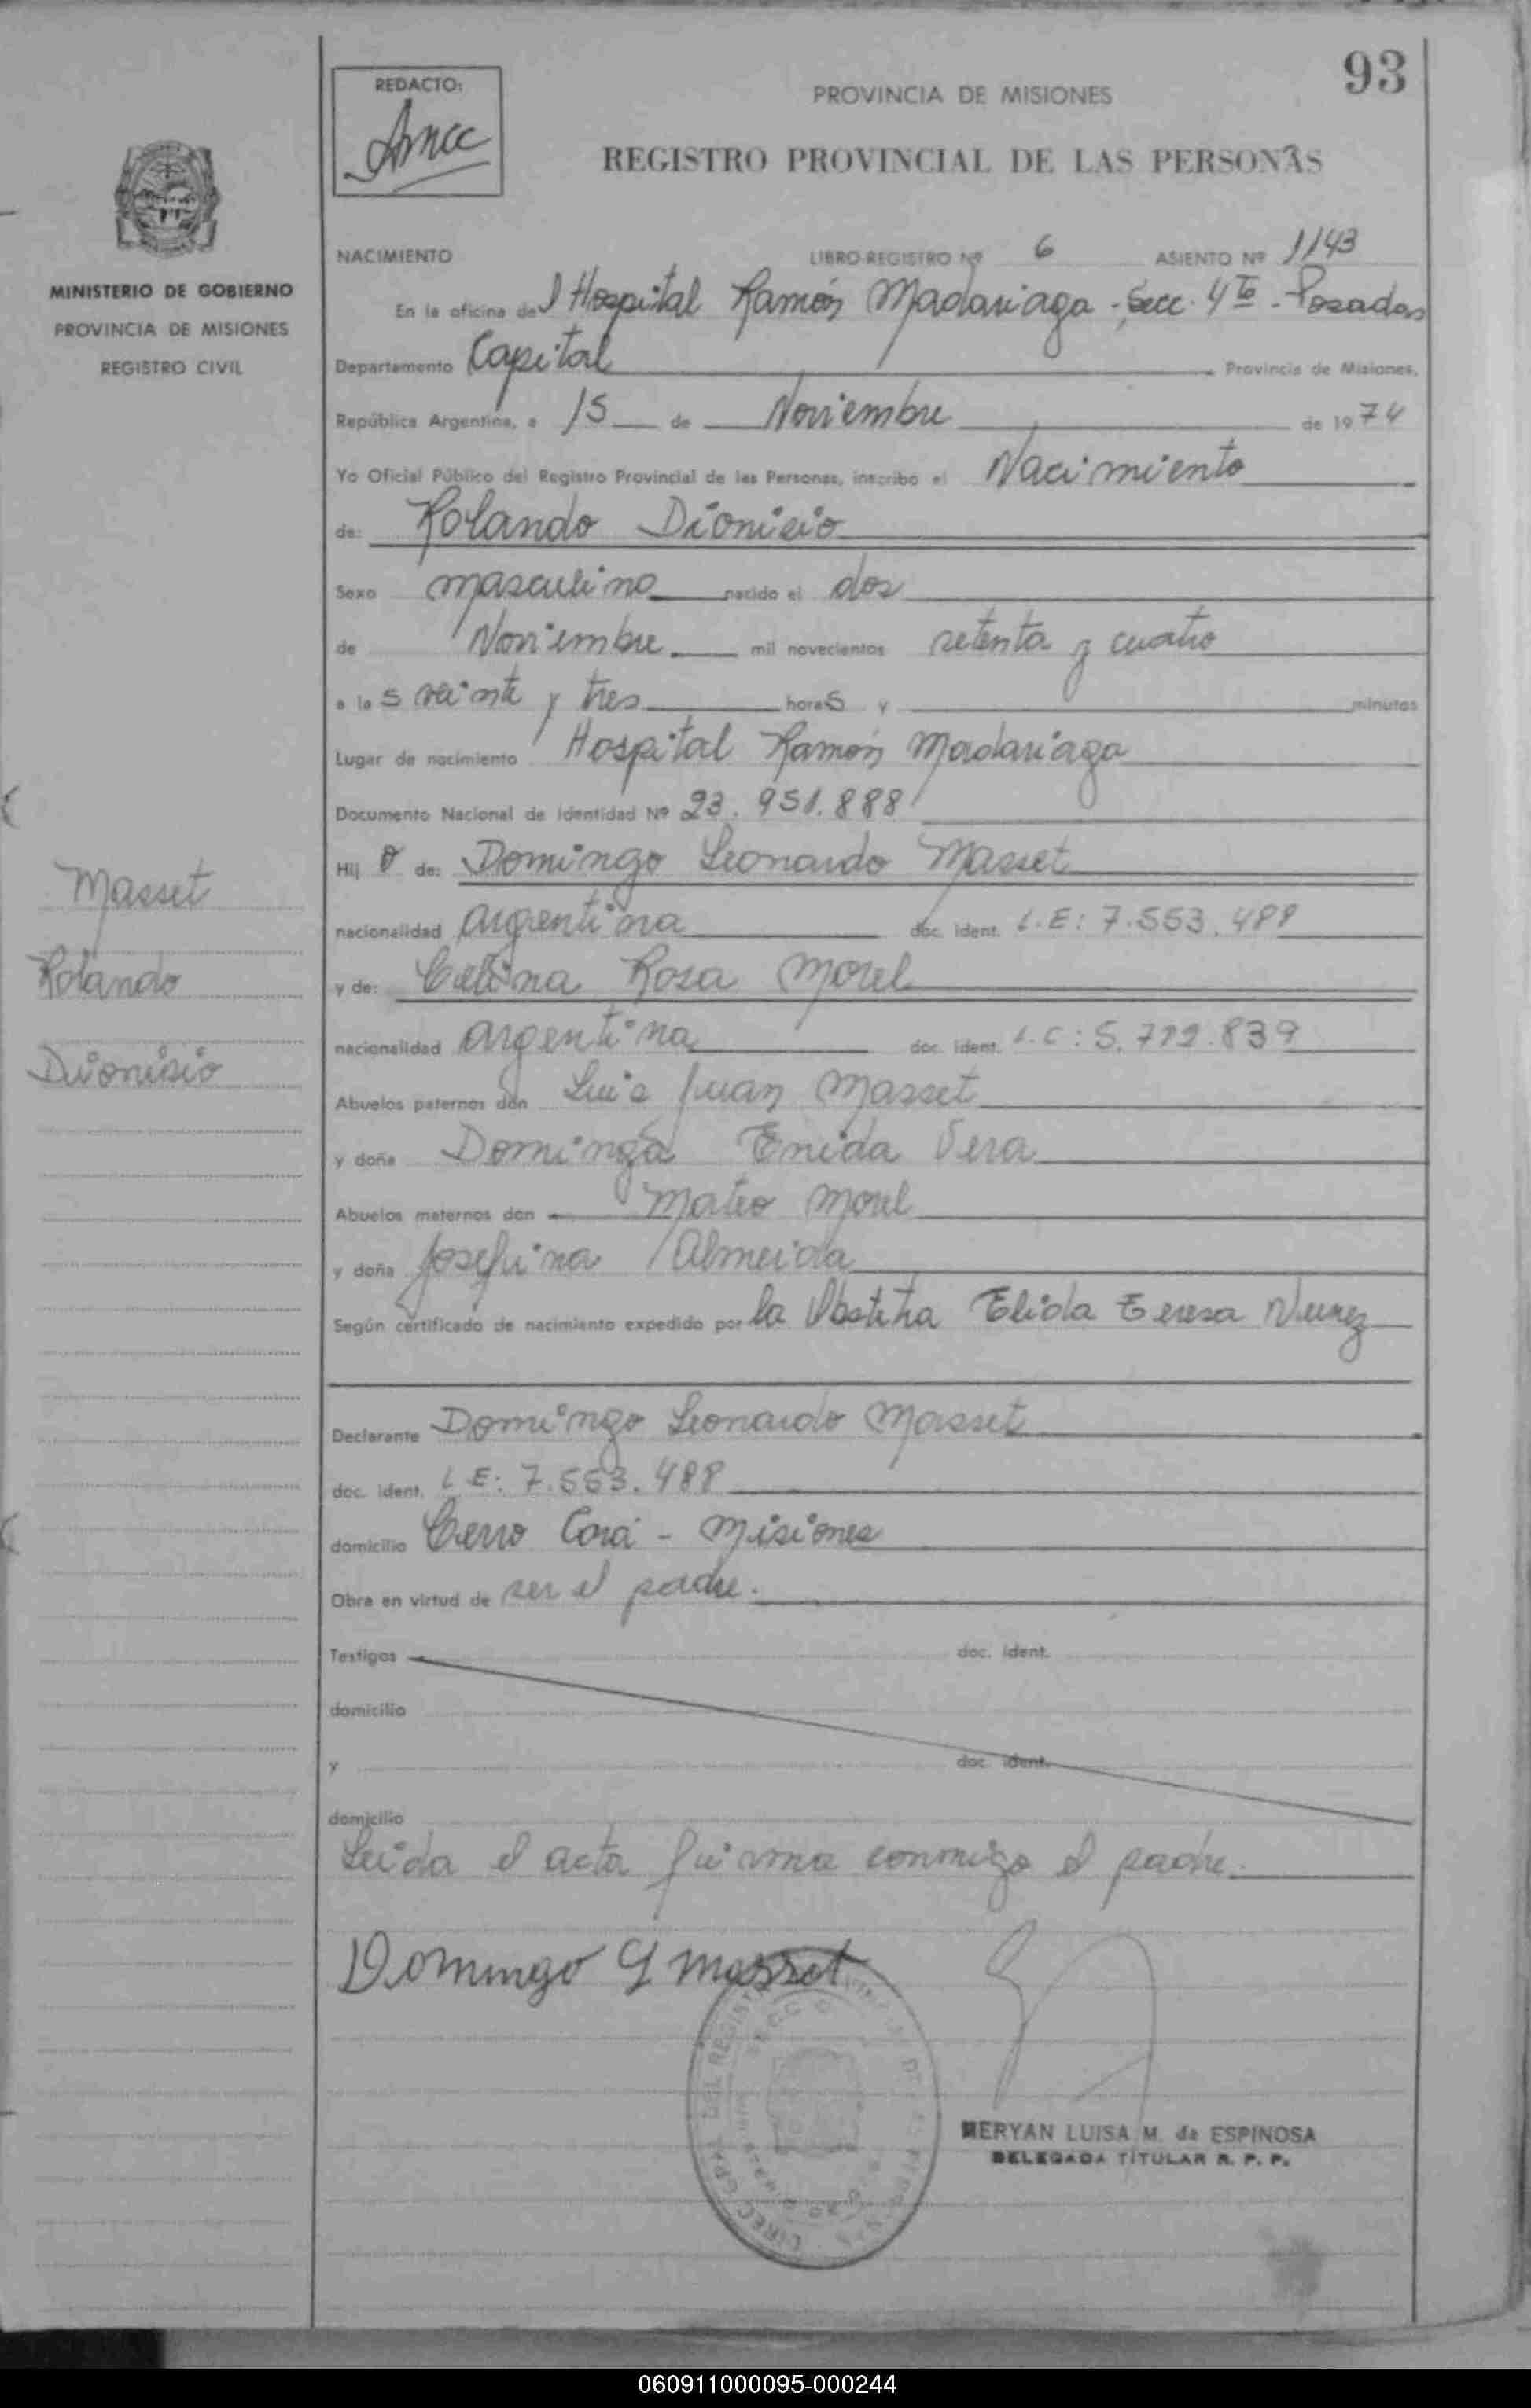 93
REDACTO:
PROVINCIA DE MISIONES
REGISTRO PROVINCIAL DE LAS PERSONAS
MINISTERIO DE GOBIERNO
PROVINCIA DE MISIONES
REGISTRO CIVIL
NACIMIENTO LIBRO-REGISTRO Nº 6 ASIENTO Nº 1143
En la oficina del Hospital Ramón Madariaga - Secc. 4ta - Posadas
Departamento Capital Provincia de Misiones,
República Argentina, a 15 de Noviembre de 1974
Yo Oficial Público del Registro Provincial de las Personas, inscribo el Nacimiento
de: Rolando Dionisio
Sexo masculino nacido el dos
de Noviembre mil novecientos setenta y cuatro
a las veinte y tres horas y minutos
Lugar de nacimiento Hospital Ramón Madariaga
Documento Nacional de Identidad Nº 23.951.888
Hijo de: Domingo Leonardo Masset
nacionalidad argentina doc. ident. L.E: 7.553.488
y de: Celina Rosa Morel
nacionalidad argentina doc. ident. L.C:
Abuelos paternos don Luis Juan Masset
y doña Dominga Enida Vera
Abuelos maternos don Mateo Morel
y doña Josefina Almeida
Según certificado de nacimiento expedido por la Obstetra Elida Teresa Nunez
Masset
Rolando
Dionisio
Declarante Domingo Leonardo Masset
doc. ident. L.E: 7.553.488
domicilio Cerro Corá - Misiones
Obra en virtud de ser el padre.
Testigos doc. ident.
domicilio
y doc. ident.
domicilio
Leida el acta firma conmigo el padre.
Domingo L Masset
MERYAN LUISA M. de ESPINOSA
DELEGADA TITULAR R. P. P.
060911000095-000244